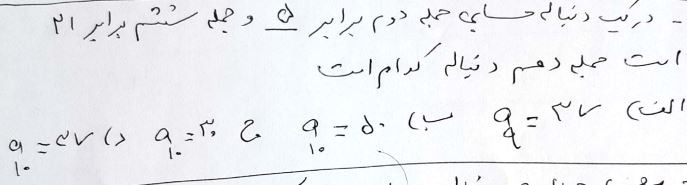 - در یک دنباله حسابی جمله دوم برابر ۵ و جمله ششم برابر ۲۱
است جمله دهم دنباله کدام است
الف) a۹ = ۳۷ ب) a۱۰ = ۵۰ ج a۱۰ = ۳۰ د) a۱۰ = ۲۷